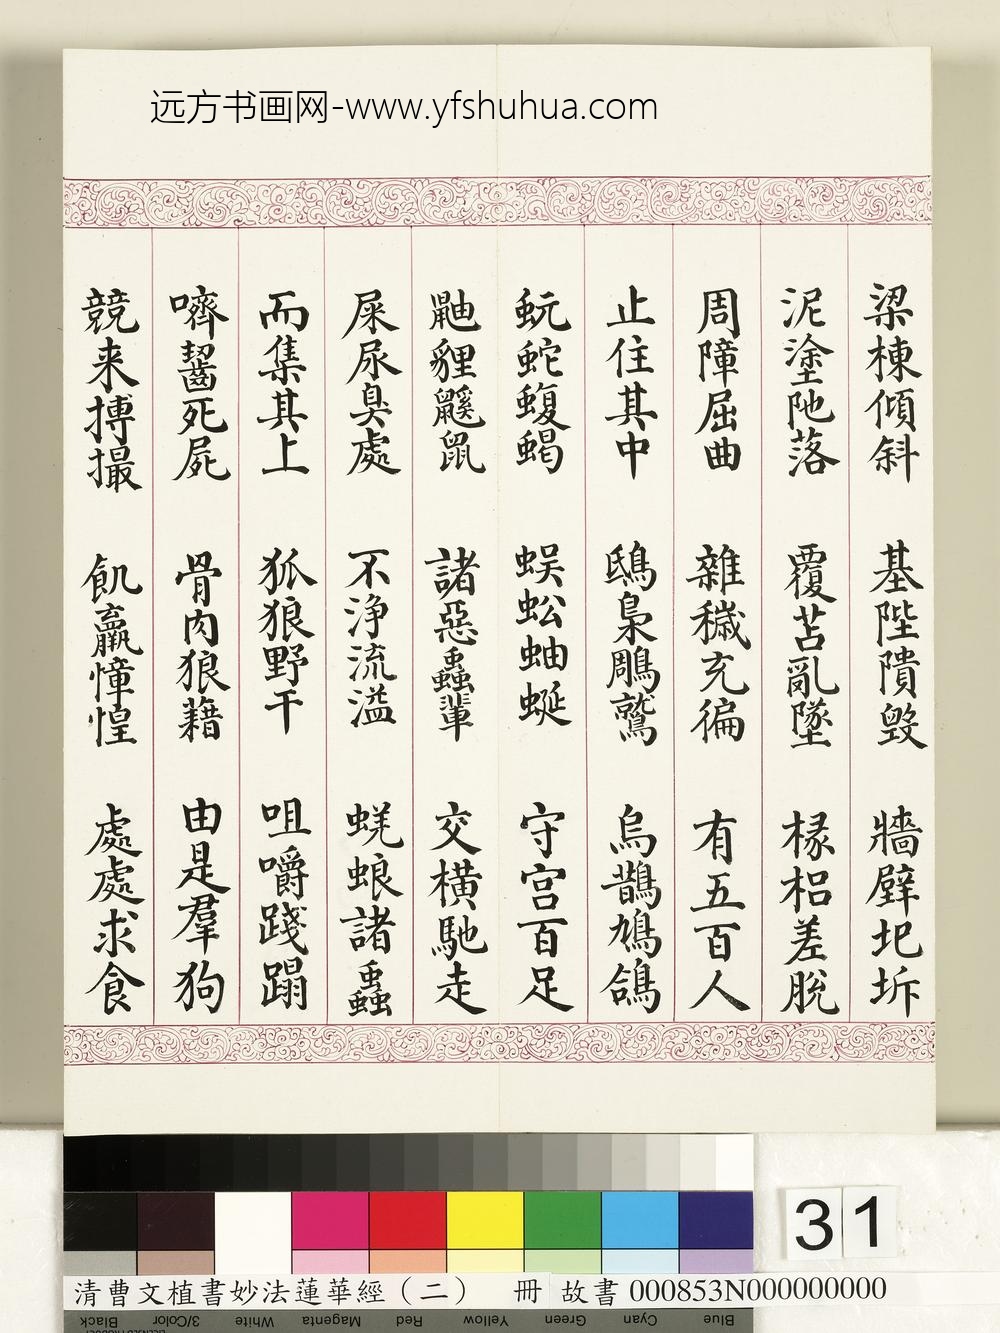 远方书画网-www.yfshuhua.com
梁棟傾斜 基陛隤毀 牆壁圯坼
泥塗阤落 覆苫亂墜 椽梠差脫
周障屈曲 雜穢充徧 有五百人
止住其中 鴟梟鵰鷲 烏鵲鳩鴿
蚖蛇蝮蝎 蜈蚣蚰蜒 守宮百足
鼬貍鼷鼠 諸惡蟲輩 交橫馳走
屎尿臭處 不淨流溢 蜣蜋諸蟲
而集其上 狐狼野干 咀嚼踐蹋
嚌齧死屍 骨肉狼藉 由是羣狗
競来搏撮 飢羸慞惶 處處求食
31
清曹文植書妙法蓮華經（二） 冊 故書 000853N000000000
Black 3/Color White Magenta Red Yellow Green Cyan Blue